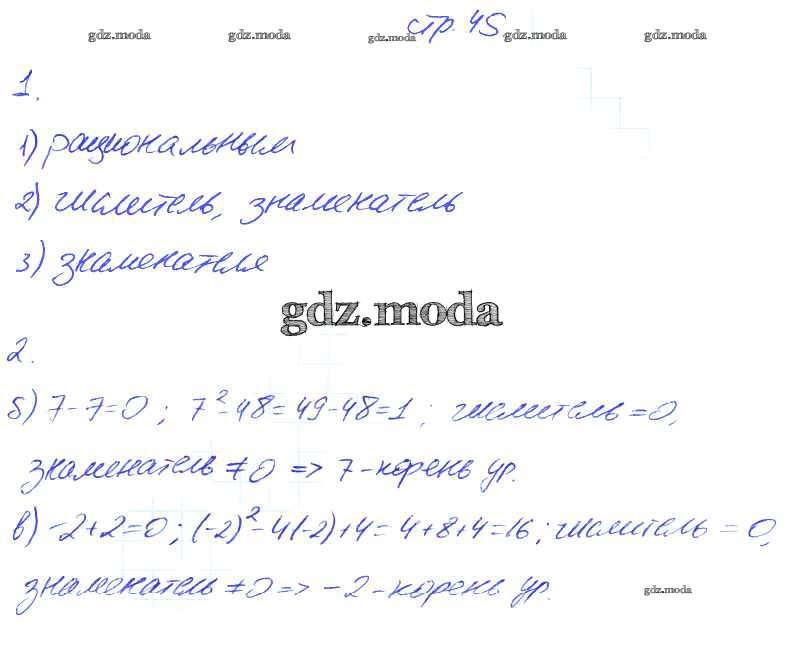 стр. 45.
gdz.moda gdz.moda gdz.moda gdz.moda gdz.moda
1.
1) рациональным
2) числитель, знаменатель
3) знаменателя
gdz.moda
2.
б) 7-7=0; 7²-48=49-48=1; числитель=0,
знаменатель ≠0 => 7-корень ур.
в) -2+2=0; (-2)²-4(-2)+4=4+8+4=16; числитель = 0,
знаменатель ≠0 => -2-корень ур.
gdz.moda